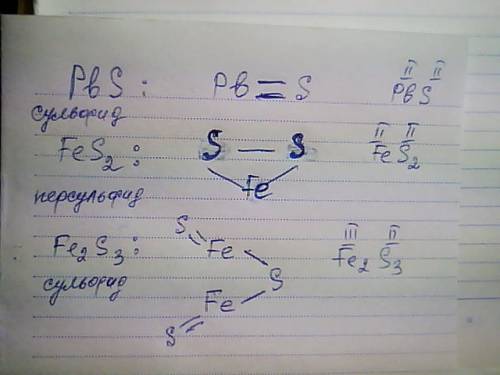 PbS : Pb = S II II PbS
сульфид
FeS₂ : S — S Fe II II FeS₂
персульфид
Fe₂S₃ : S = Fe — S — Fe = S III II Fe₂S₃
сульфид